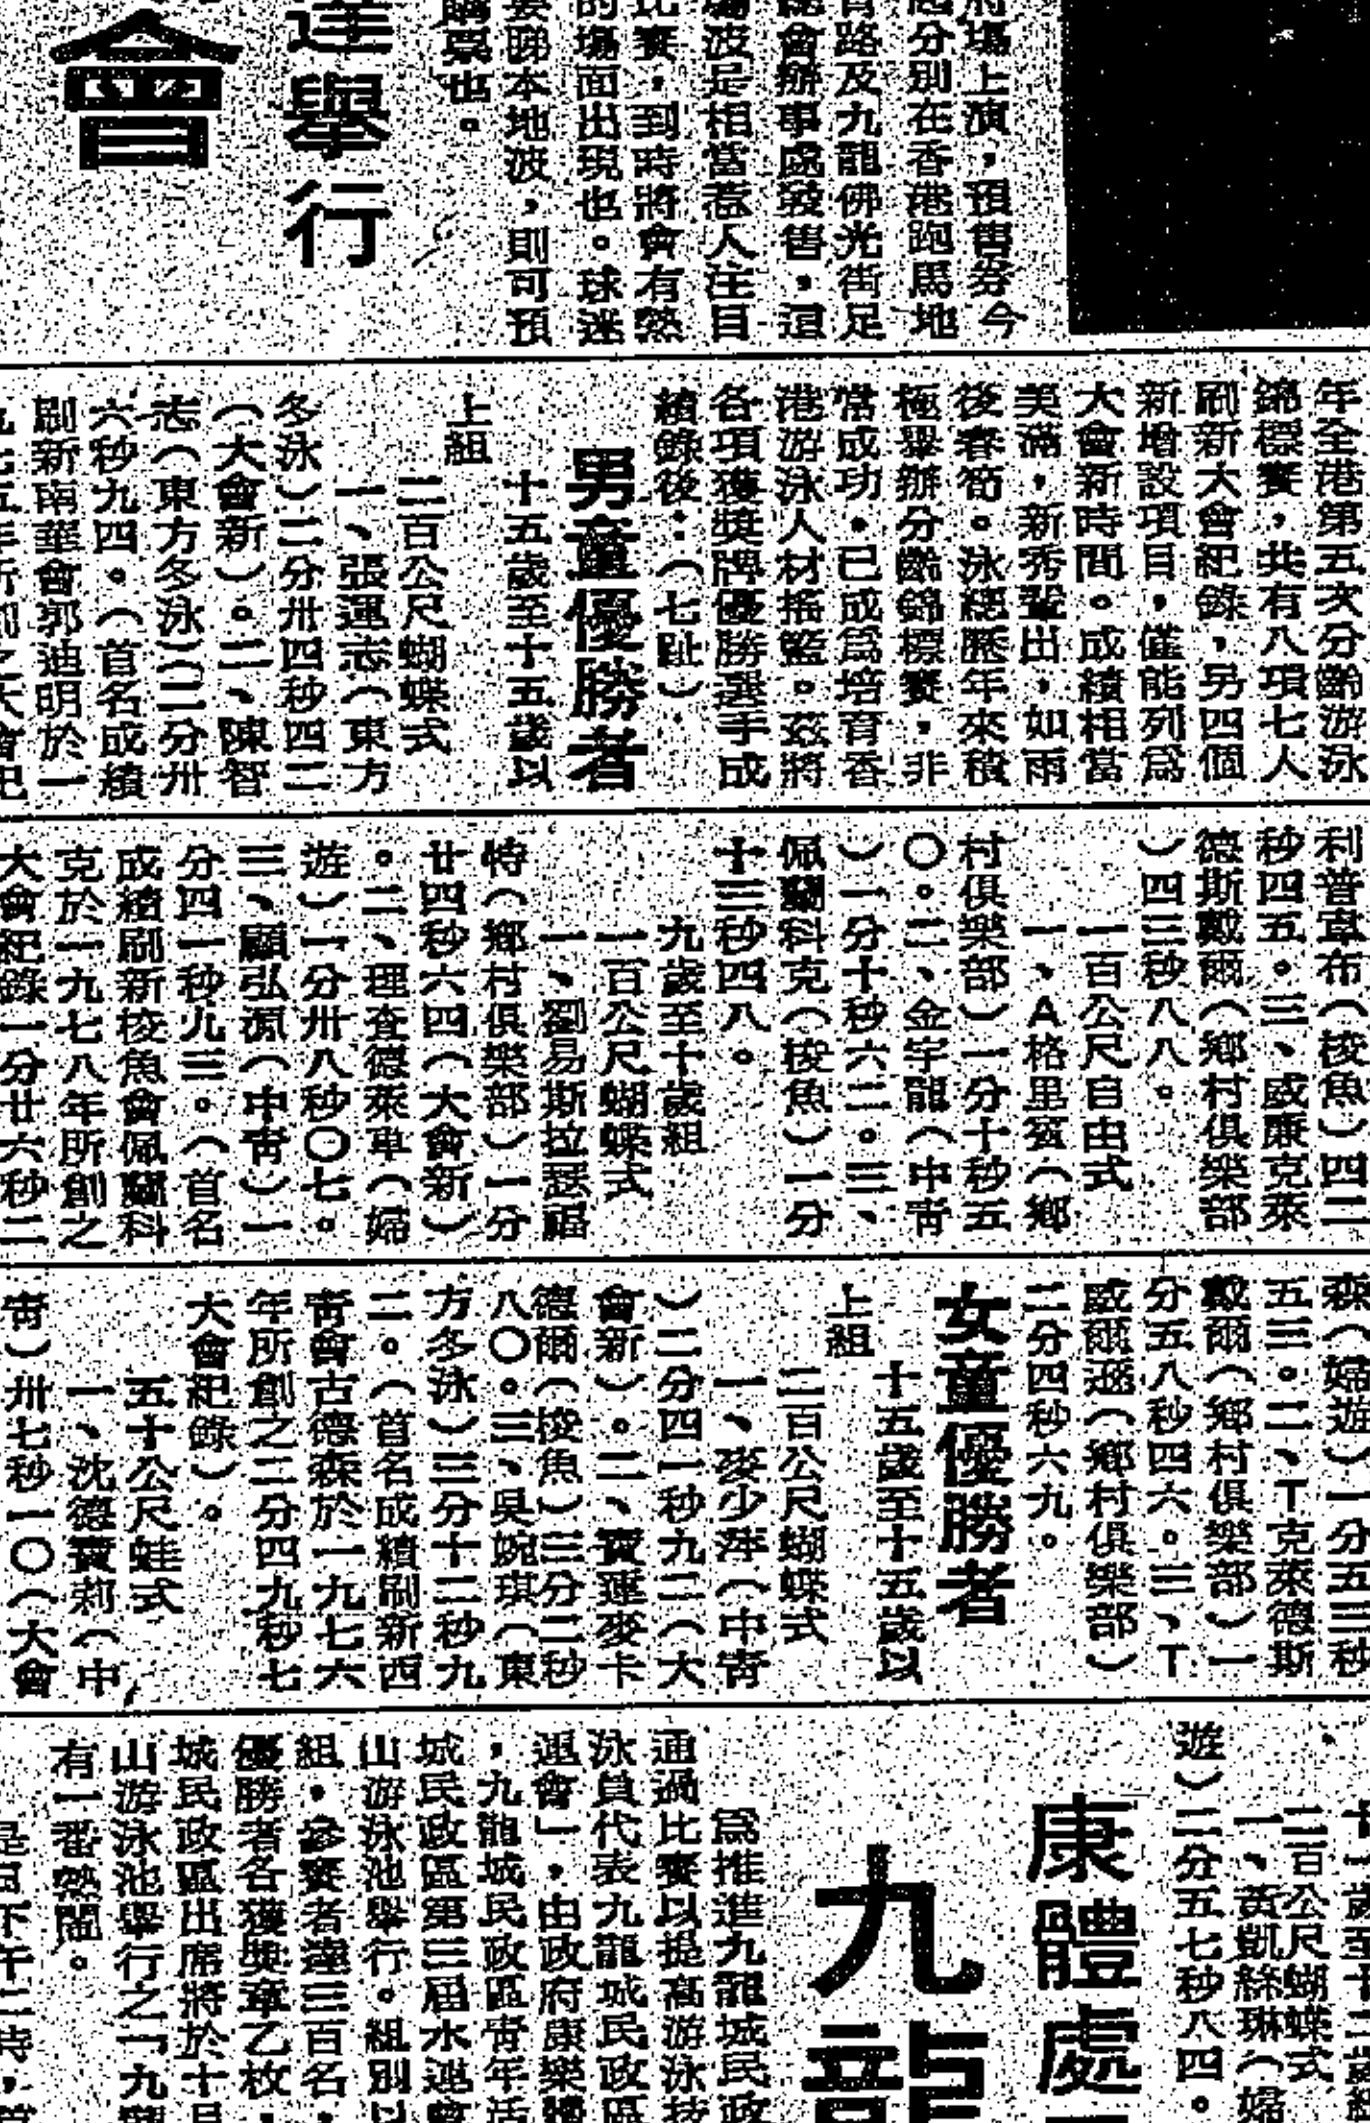 府場上演，預售券今
起分別在香港跑馬地
育路及九龍佛光街足
總會辦事處發售，這
場波是相當惹人注目
比賽，到時將會有熱
的場面出現也。球迷
要睇本地波，則可預
購票也。
達舉行
會
年全港第五次分齡游泳
錦標賽，共有八項七人
刷新大會紀錄，另四個
新增設項目，僅能列爲
大會新時間。成績相當
美滿，新秀輩出，如雨
後春筍。泳總歷年來積
極舉辦分齡錦標賽，非
常成功。已成爲培育香
港游泳人材搖籃。茲將
各項獲獎牌優勝選手成
績錄後：（七趾）．
男童優勝者
十五歲至十五歲以
上組
二百公尺蝴蝶式
一、張運志（東方
冬泳）二分卅四秒四二
（大會新）。二、陳智
志（東方冬泳）（二分卅
六秒九四。（首名成績
刷新南華會郭迪明於一
九七五年所創之大會紀
利普韋布（梭魚）四二
秒四五。三、威廉克萊
德斯戴爾（鄉村俱樂部
）四三秒八八。
一百公尺自由式
一、A格里賓（鄉
村俱樂部）一分十秒五
〇。二、金宇龍（中靑
）一分十秒六二。三、
佩爾科克（梭魚）一分
十三秒四八。
九歲至十歲組
一百公尺蝴蝶式
一、劉易斯拉瑟福
特（鄉村俱樂部）一分
廿四秒六四（大會新）
。二、理查德萊車（婦
遊）一分卅八秒〇七。
三、顧弘源（中靑）一
分四一秒九三。（首名
成績刷新梭魚會佩爾科
克於一九七八年所創之
大會紀錄一分廿六秒二
森（婦遊）一分五三秒
五三。二、T克萊德斯
戴爾（鄉村俱樂部）一
分五八秒四六。三、T
威爾遜（鄉村俱樂部）
二分四秒六九。
女童優勝者
十五歲至十五歲以
上組
二百公尺蝴蝶式
一、麥少萍（中靑
）二分四一秒九二（大
會新）。二、寶蓮麥卡
德爾（梭魚）三分二秒
八〇。三、吳婉琪（東
方冬泳）三分十二秒九
二。（首名成績刷新西
靑會古德森於一九七六
年所創之二分四九秒七
大會紀錄）。
五十公尺蛙式
一、沈德寶莉（中
靑）卅七秒一〇（大會
二百公尺蝴蝶式
一、黃凱絲琳（婦
遊）二分五七秒八四。
康體處
九龍
爲推進九龍城民政
通過比賽以提高游泳技
泳員代表九龍城民政區
運會」，由政府康樂體
，九龍城民政區靑年活
城民政區第三屆水運會
山游泳池舉行。組別以
組，參賽者達三百名，
優勝者各獲獎章乙枚，
城民政區出席將於十月
山游泳池舉行之「九龍
有一番熱鬧。
是日下午二時，